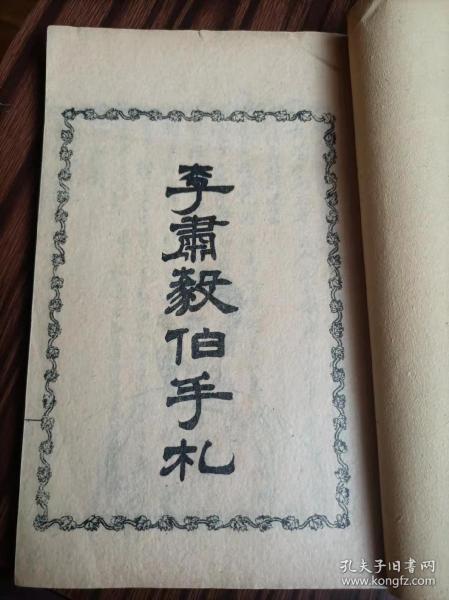 李肅毅伯手札
孔夫子旧书网
www.kongfz.com